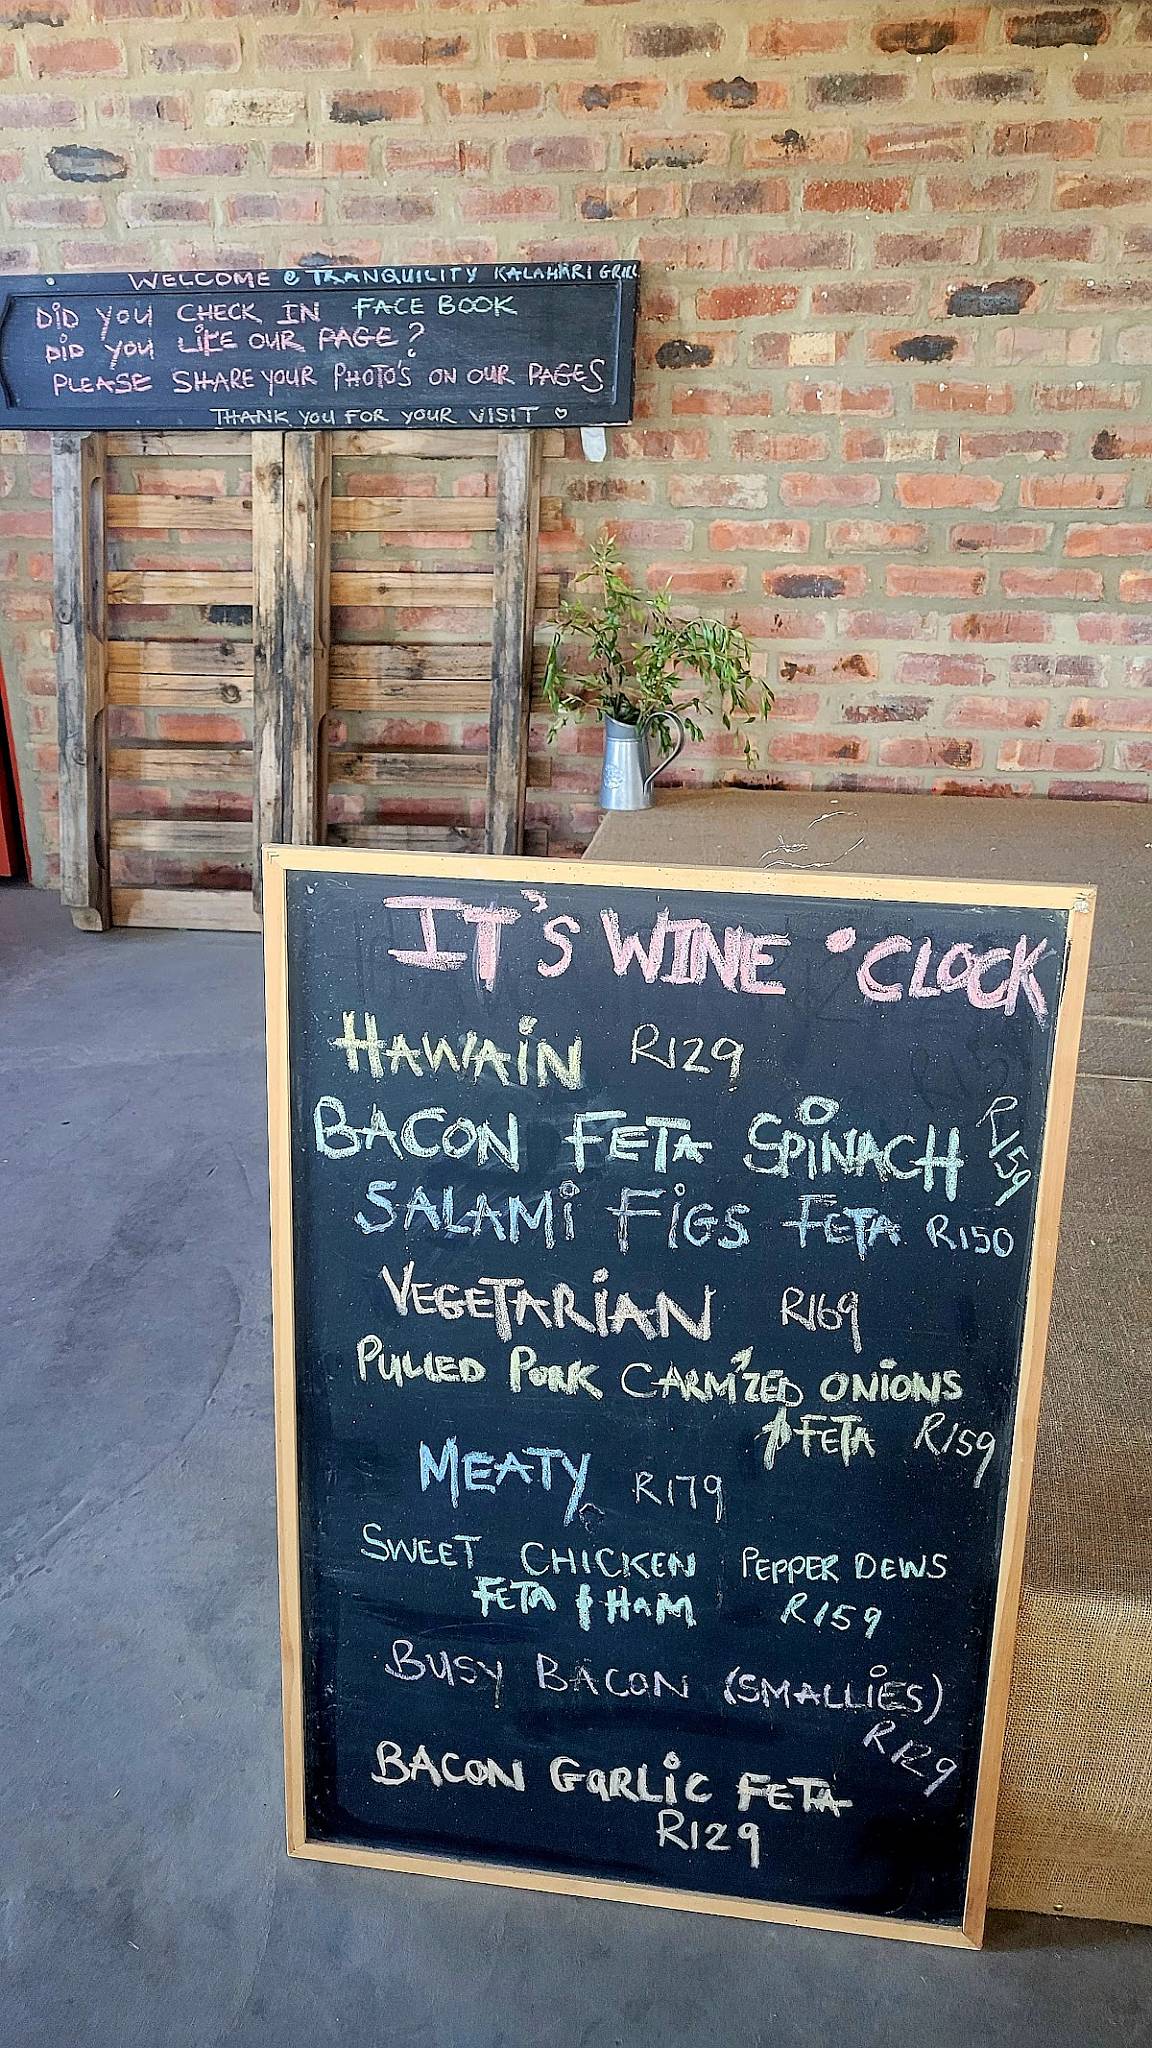 WELCOME @ TRANQUILITY KALAHARI GRILL
DiD YOU CHECK IN FACE BOOK
DiD YOU LIKE OUR PAGE?
PLEASE SHARE YOUR PHOTO'S ON OUR PAGES
THANK YOU FOR YOUR VISIT ♡
IT'S WINE °CLOCK
HAWAiN R129
BACON FETA SPiNACH R159
SALAMi FiGS FETA R150
VEGETARiAN R169
PULLED PORK CARM'ZED ONiONS
& FETA R159
MEATY R179
SWEET CHICKEN PEPPER DEWS
FETA & HAM R159
BUSY BACON (SMALLiES)
R129
BACON GaRLiC FETA
R129